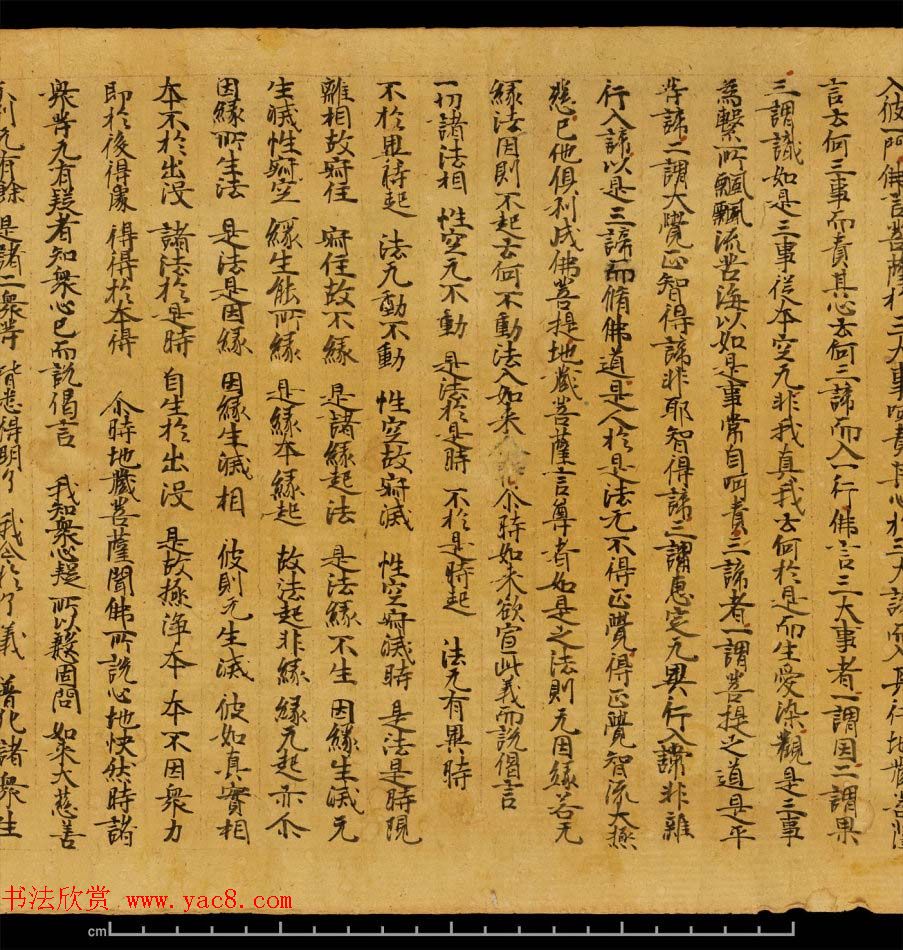 入彼一門佛言菩薩於三大事呵責其心於三大諦而入其行地藏菩薩
言云何三事而責其心云何三諦而入一行佛言三大事者一謂因二謂果
三謂識如是三事從本空无非我真我云何於是而生愛染觀是三事
為繫所飄飄流苦海以如是事常自呵責三諦者一謂菩提之道是平
等諦二謂大覺正智得諦非耶智得諦三謂惠定无異行入諦非雜
行入諦以是三諦而脩佛道是人於是法无不得正覺得正覺智流大極
慈已他俱利成佛菩提地藏菩薩言尊者如是之法則无因緣若无
緣法因則不起云何不動法入如來尒時如來欲宣此義而說偈言
一切諸法相 性空无不動 是法於是時 不於是時起 法无有異時
不於異時起 法无動不動 性空故寂滅 性空寂滅時 是法是時現
離相故寂住 寂住故不緣 是諸緣起法 是法緣不生 因緣生滅无
生滅性寂空 緣生能所緣 是緣本緣起 故法起非緣 緣无起亦尒
因緣所生法 是法是因緣 因緣生滅相 彼則无生滅 彼如真實相
本不於出沒 諸法於是時 自生於出沒 是故極淨本 本不因衆力
即於後得處 得得於本得 尒時地藏菩薩聞佛所說心地快然時諸
衆等无有疑者知衆心已而說偈言 我知衆心疑 所以慇固問 如來大慈善
別无有餘 是諸二衆等 皆悉得明了 我今於了義 普化諸衆生
书法欣赏 www.yac8.com
cm